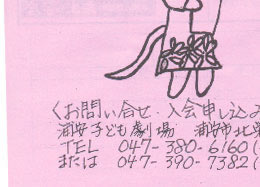 <お問い合せ・入会申し込み
浦安子ども劇場　浦安市北栄
TEL 047-380-6160(
または 047-390-7382(